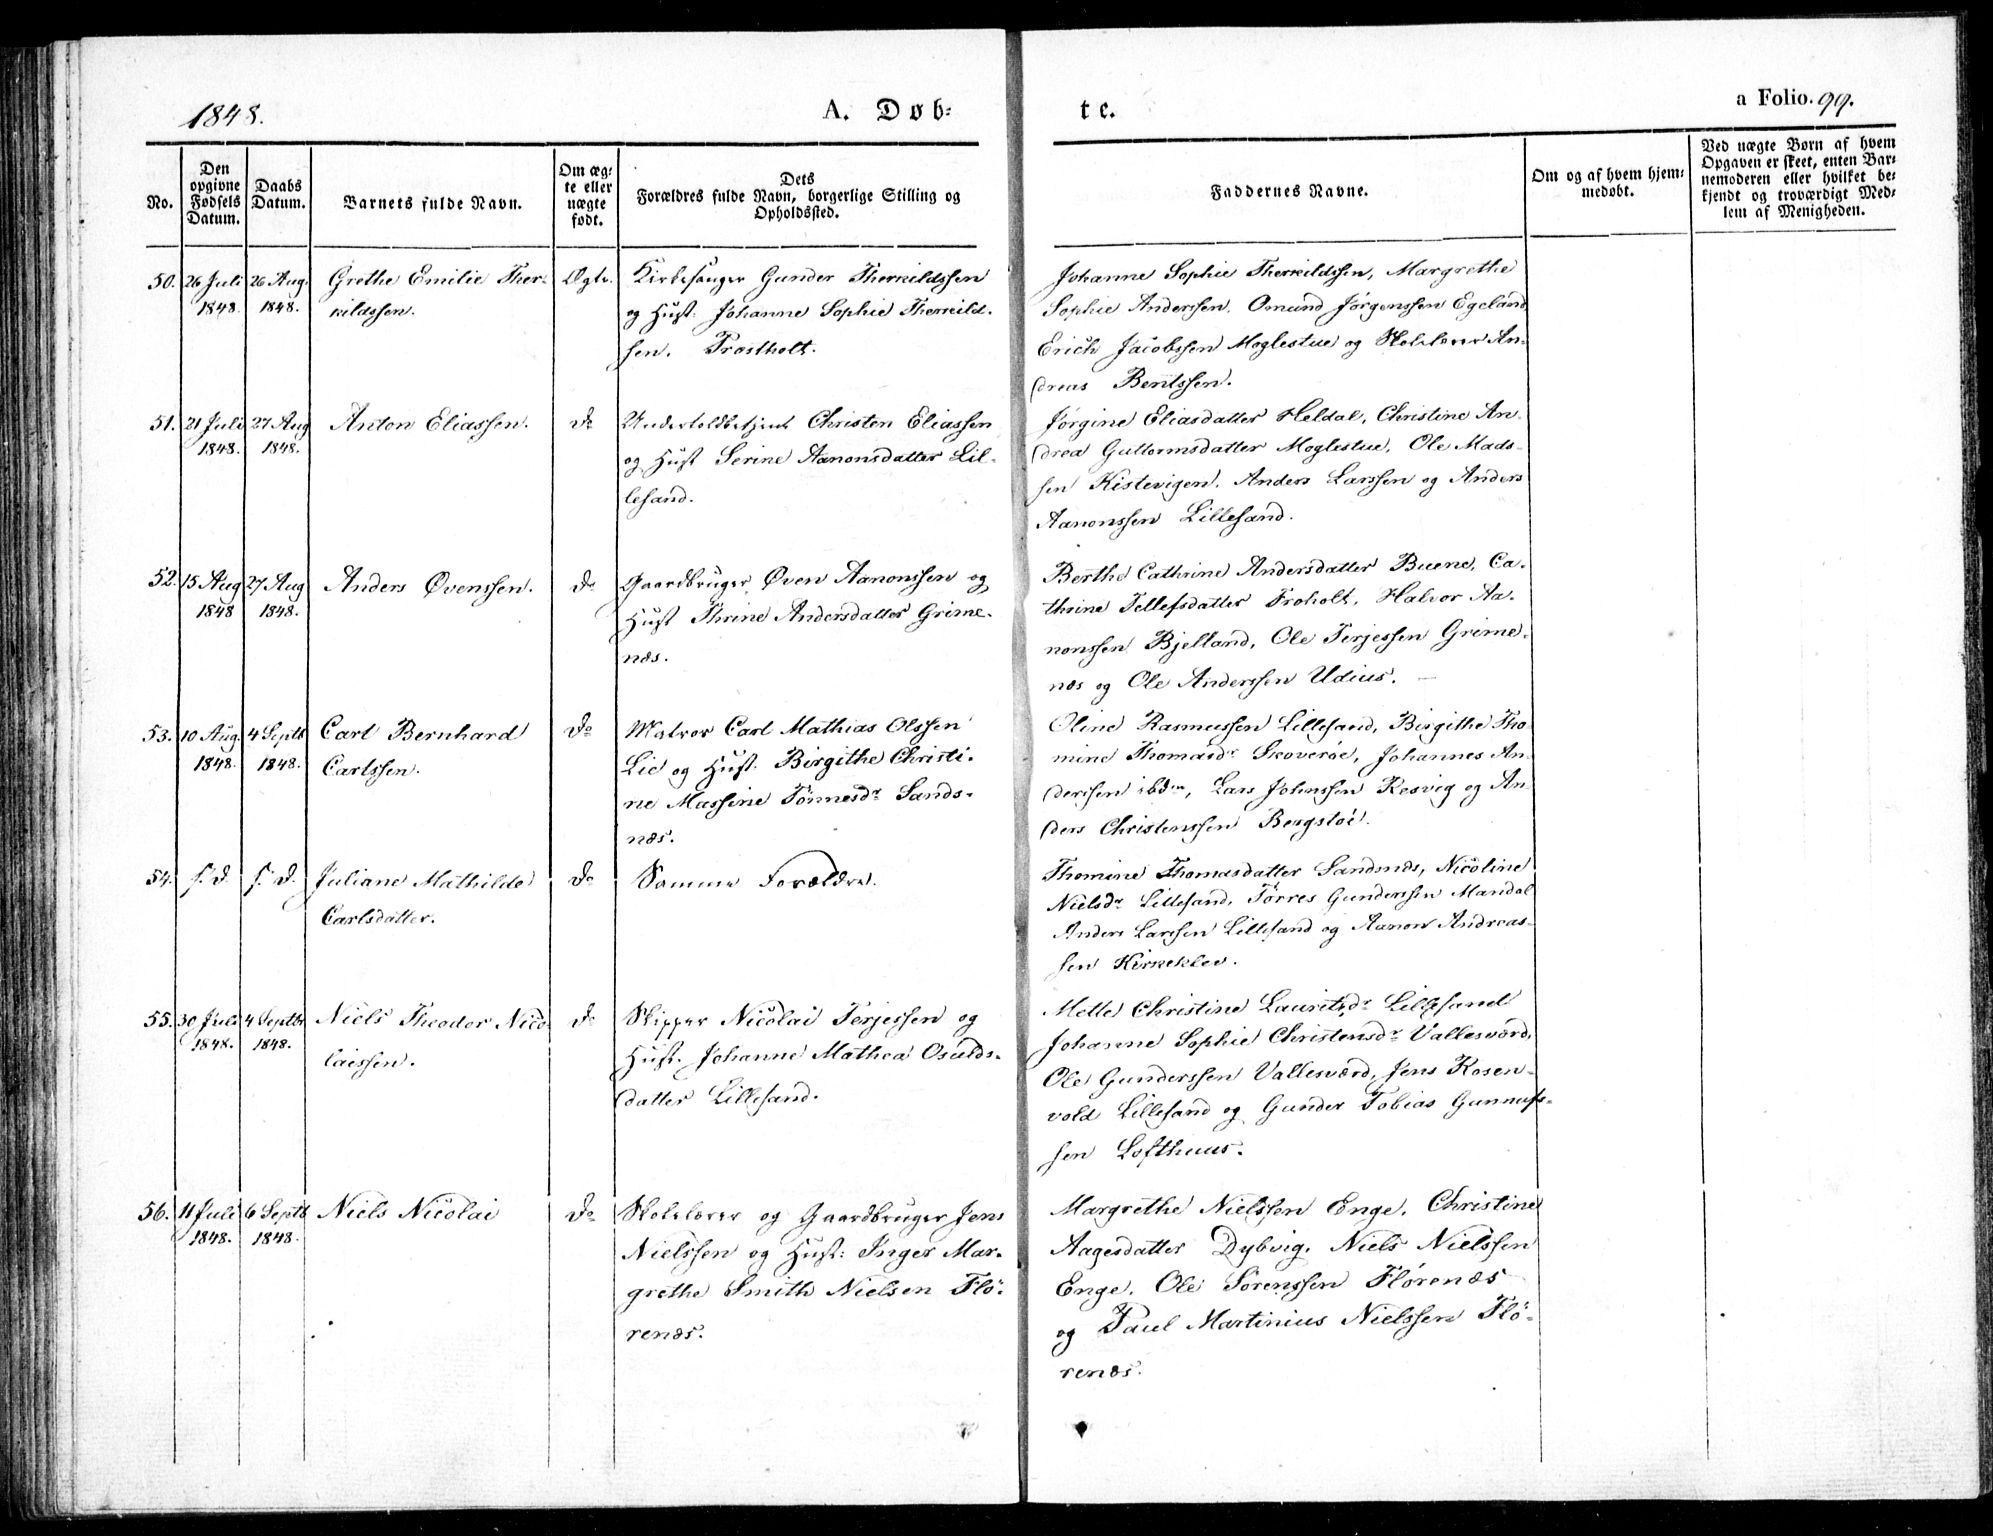 1848.
A. Døb=
te.
a Folio. 99.
No.
Den opgivne Fødsels Datum.
Daabs Datum.
Barnets fulde Navn.
Om æg= te eller uægte født.
Dets
Forældres fulde Navn, borgerlige Stilling og
Opholdssted.
Faddernes Navne.
Om og af hvem hjem=
medøbt.
Ved uægte Børn af hvem
Opgaven er skeet, enten Bar=
nemoderen eller hvilket be=
kjendt og troværdigt Med=
lem af Menigheden.
50. 26 Juli 1848. 26 Aug. 1848.
Grethe Emilie Ther-
kildssen.
Ægte.
Kirkesanger Gunder Therkildssen
og Hust: Johanne Sophie Therkild-
sen. Træstholt.
Johanne Sophie Therkildssen, Margrethe
Sophie Anderssen, Omund Jørgenssen Egeland
Erich Jacobssen Moglestue og Skolelærer An-
dreas Bentssen.
51. 21 Juli 1848. 27 Aug 1848.
Anton Eliassen.
do
Undertoldbetjent Christen Eliassen
og Hust Serine Aanonsdatter Lil-
lesand.
Jørgine Eliasdatter Heldal, Christine An-
drea Guttormsdatter Moglestue, Ole Mads-
sen Kistevigen, Anders Larssen og Anders
Aanonssen Lillesand.
52. 15 Aug 1848 27 Aug 1848.
Anders Øvenssen.
do
Gaardbruger Øven Aanonssen og
Hust Thrine Andersdatter Grime-
næs.
Berthe Cathrine Andersdatter Buene, Ca-
thrine Tellefsdatter Froholt, Halvor Aa-
nonssen Bjelland, Ole Terjessen Grime-
næs og Ole Anderssen Udius.
53. 10 Aug. 1848. 4 Septb 1848.
Carl Bernhard
Carlssen.
do
Matros Carl Mathias Olssen
Lie og Hust. Birgithe Christi-
ne Massine Tönnesdr Sands-
næs.
Oline Rasmussen Lillesand, Birgithe Tho
mine Thomasdr Skoveröe, Johannes An-
derssen ibdm, Lars Johnssen Kosvig og An-
ders Christenssen Bergstöe.
54. s. D. s. D.
Juliane Mathilde
Carlsdatter.
do
Samme Forældre.
Thomine Thomasdatter Sandnæs, Nicoline
Nielsdr Lillesand, Tørres Gunderssen Mandal
Anders Larssen Lillesand og Aanon Andreas-
sen Kirkeklev.
55. 30 Juli 1848. 4 Septbr 1848.
Niels Theodor Nico-
laissen.
do
Skipper Nicolai Terjessen og
Hust. Johanne Mathea Osulds-
datter Lillesand.
Mette Christine Lauritsdr Lillesand
Johanne Sophie Christensdr Vallesværd,
Ole Gunderssen Vallesværd, Jens Rosen-
vold Lillesand og Gunder Tobias Gunnufs-
sen Lofthuus.
56. 11 Juli 1848. 6 Septb 1848.
Niels Nicolai
do
Skolelærer og Gaardbruger Jens
Nielssen og Hust: Inger Mar-
grethe Smith Nielsen Flö-
renæs.
Margrethe Nielssen Enge, Christine
Aagesdatter Dybvig, Niels Nielssen
Enge, Ole Sörenssen Flörenæs
og Paul Martinius Nielssen Flö-
renæs.